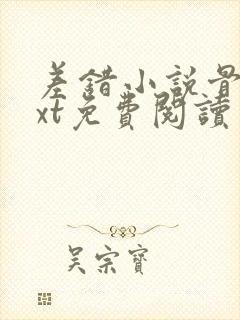 差錯小說最
xt免費閱讀
吴宗寶